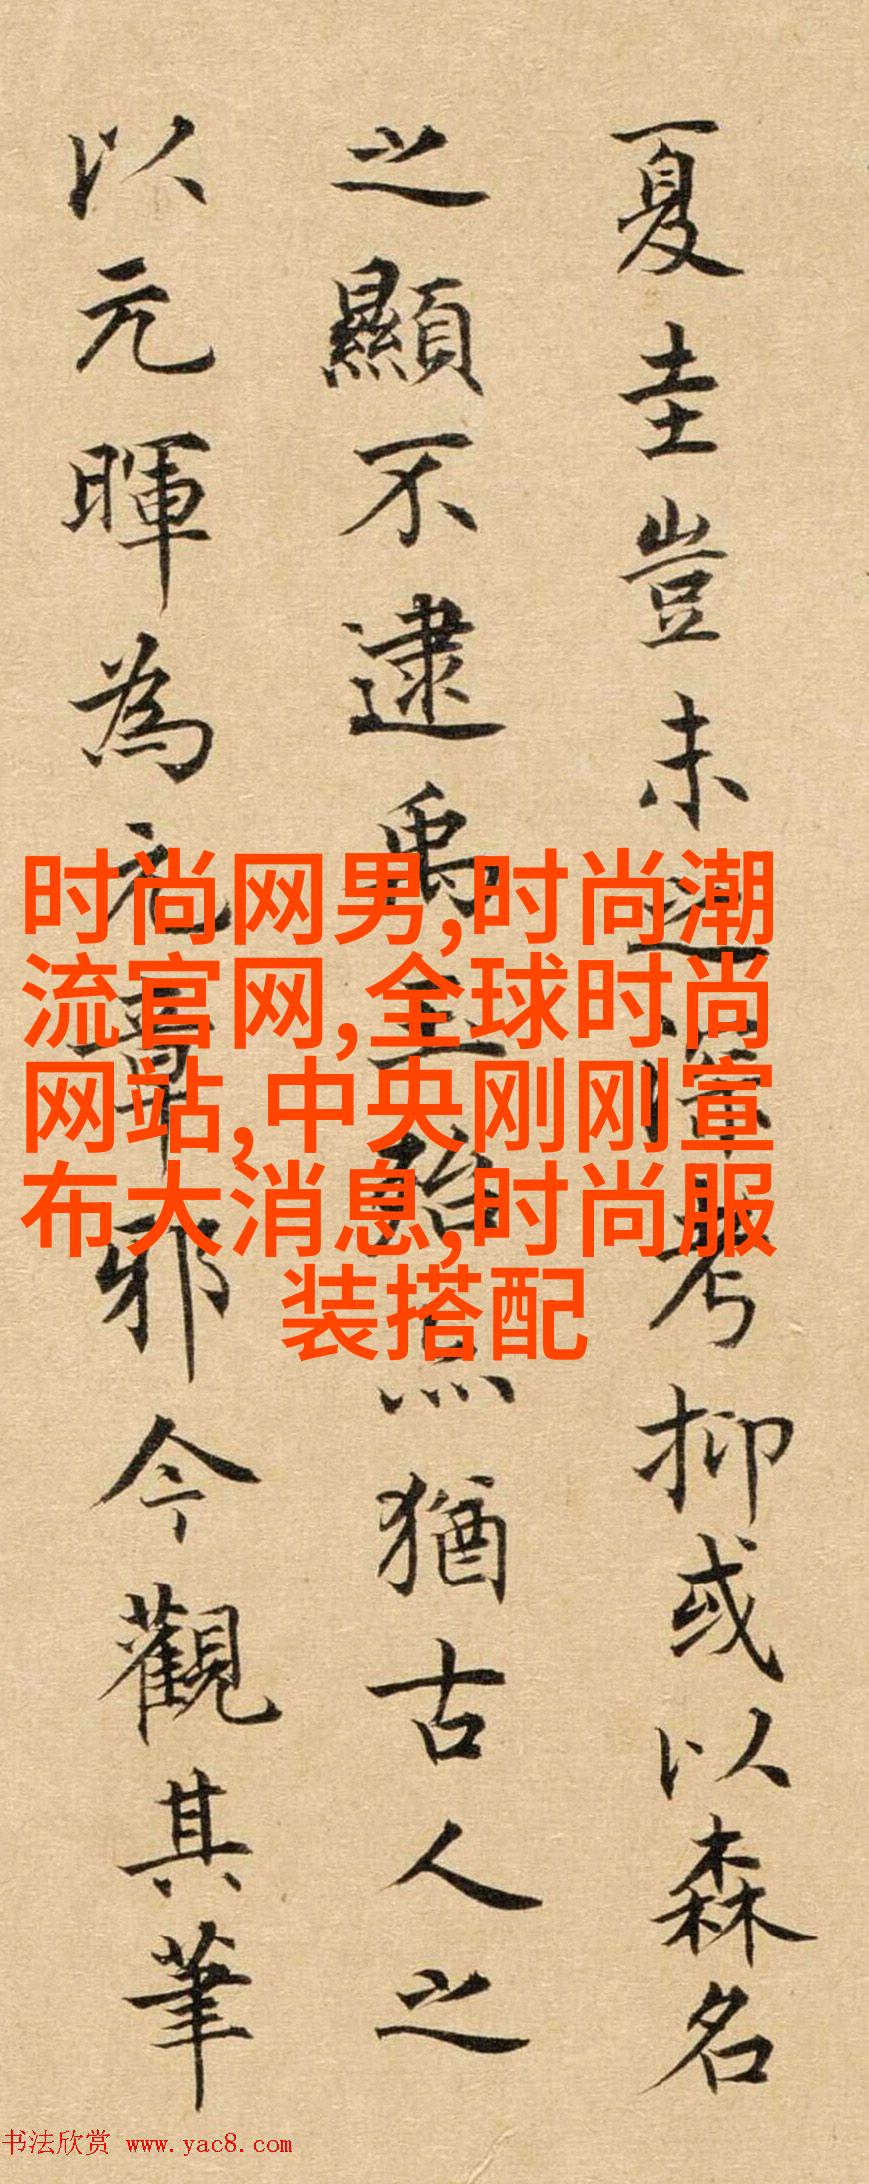 夏圭豈未之深考抑或以森名
之顯不逮禹玉殆亦猶古人之
以元暉為元章邪今觀其筆
时尚网男,时尚潮
流官网,全球时尚
网站,中央刚刚宣
布大消息,时尚服
装搭配
书法欣赏 www.yac8.com